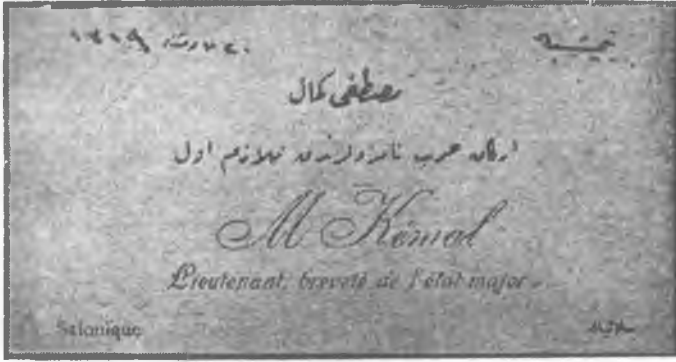 مصطفى كمال
اركان حرب نامزدلرندن ملازم اول
M Kémal
Lieutenant, breveté de l'état-major
Salonique سلانيك